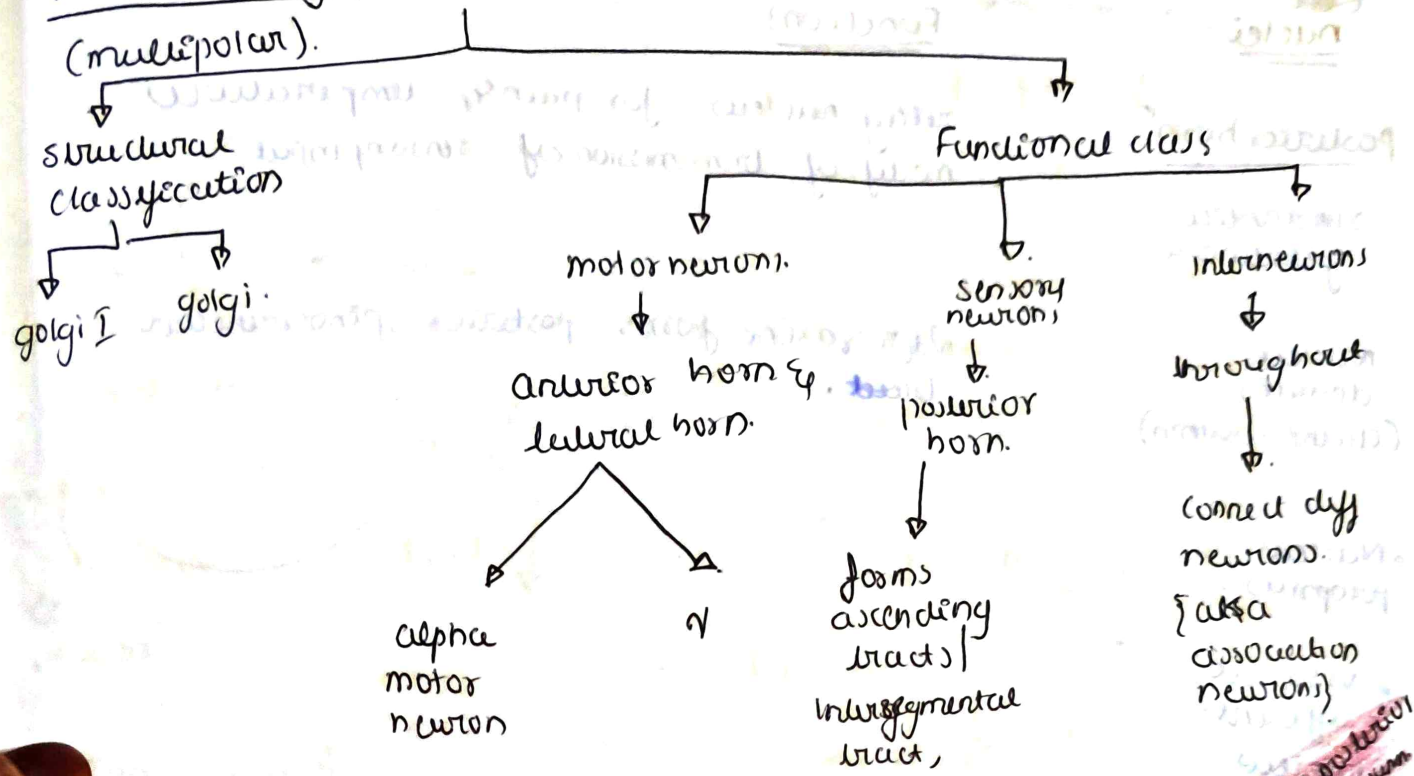 (multipolar).
structural
classification
golgi I
golgi.
Functional class
motor neurons.
anterior horn &
lateral horn.
alpha
motor
neuron
γ
sensory
neurons
posterior
horn.
forms
ascending
tracts/
intersegmental
tract,
interneurons
throughout
connect diff
neurons.
{aka
association
neurons}
posterior